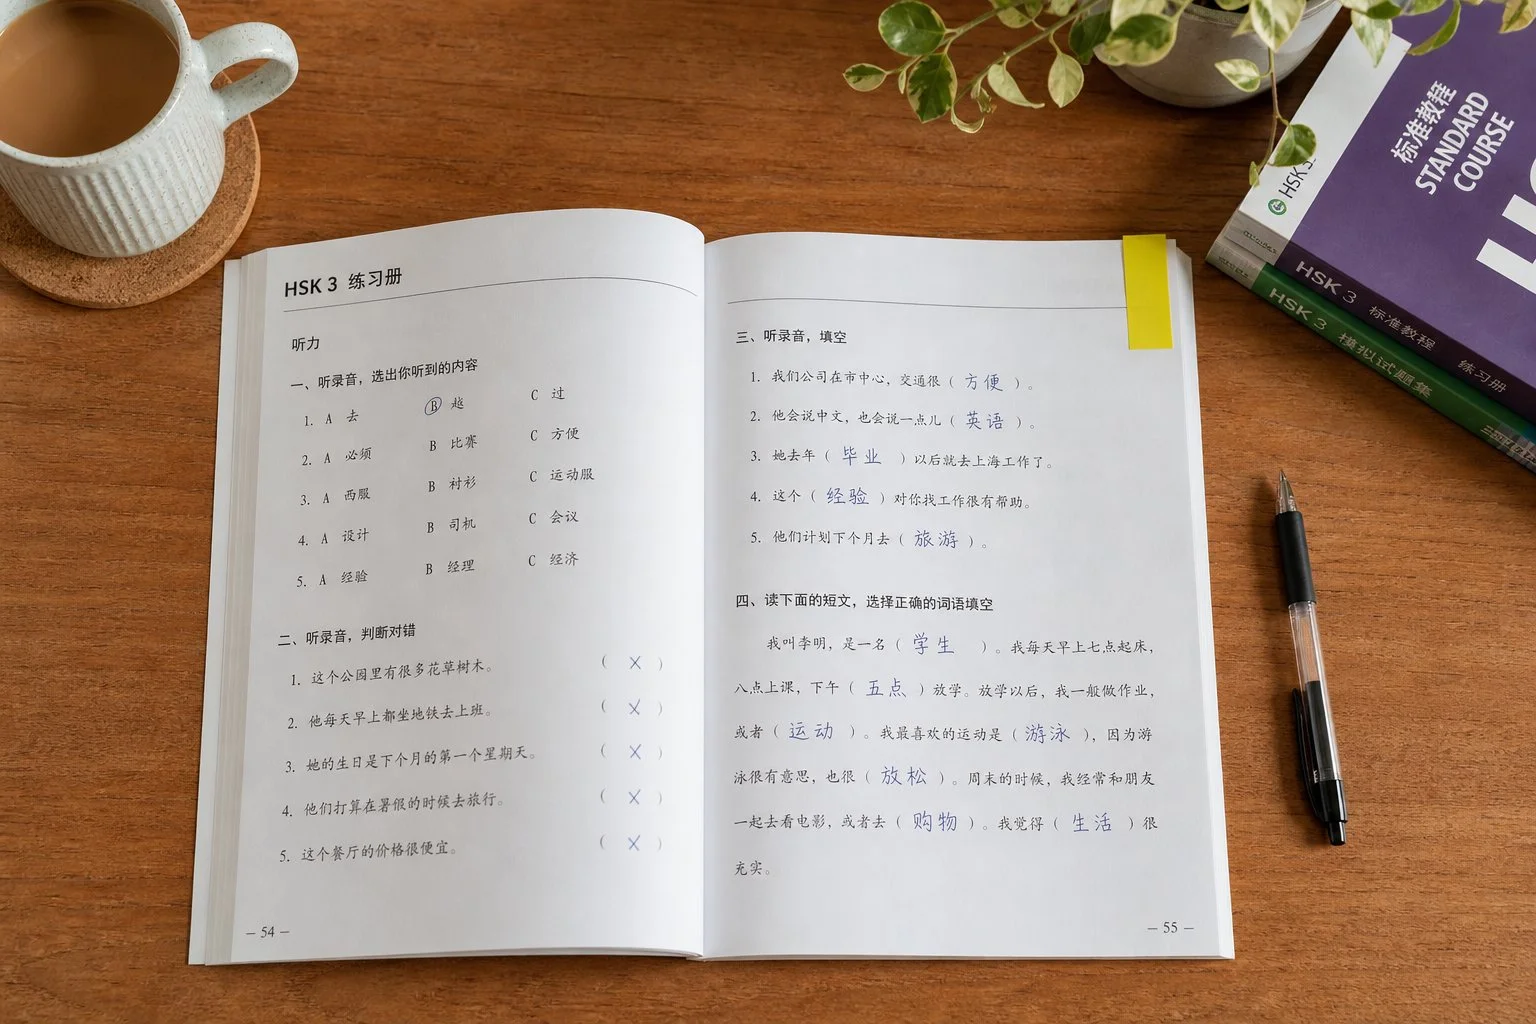 HSK 3 练习册
听力
一、听录音，选出你听到的内容
1. A 去 B 越 C 过
2. A 必须 B 比赛 C 方便
3. A 西服 B 衬衫 C 运动服
4. A 设计 B 司机 C 会议
5. A 经验 B 经理 C 经济
二、听录音，判断对错
1. 这个公园里有很多花草树木。 ( × )
2. 他每天早上都坐地铁去上班。 ( × )
3. 她的生日是下个月的第一个星期天。 ( × )
4. 他们打算在暑假的时候去旅行。 ( × )
5. 这个餐厅的价格很便宜。 ( × )
— 54 —
三、听录音，填空
1. 我们公司在市中心，交通很（ 方便 ）。
2. 他会说中文，也会说一点儿（ 英语 ）。
3. 她去年（ 毕业 ）以后就去上海工作了。
4. 这个（ 经验 ）对你找工作很有帮助。
5. 他们计划下个月去（ 旅游 ）。
四、读下面的短文，选择正确的词语填空
我叫李明，是一名（ 学生 ）。我每天早上七点起床，
八点上课，下午（ 五点 ）放学。放学以后，我一般做作业，
或者（ 运动 ）。我最喜欢的运动是（ 游泳 ），因为游
泳很有意思，也很（ 放松 ）。周末的时候，我经常和朋友
一起去看电影，或者去（ 购物 ）。我觉得（ 生活 ）很
充实。
— 55 —
标准教程
STANDARD
COURSE
HSK 3 标准教程 练习册
HSK 3 模拟试题集